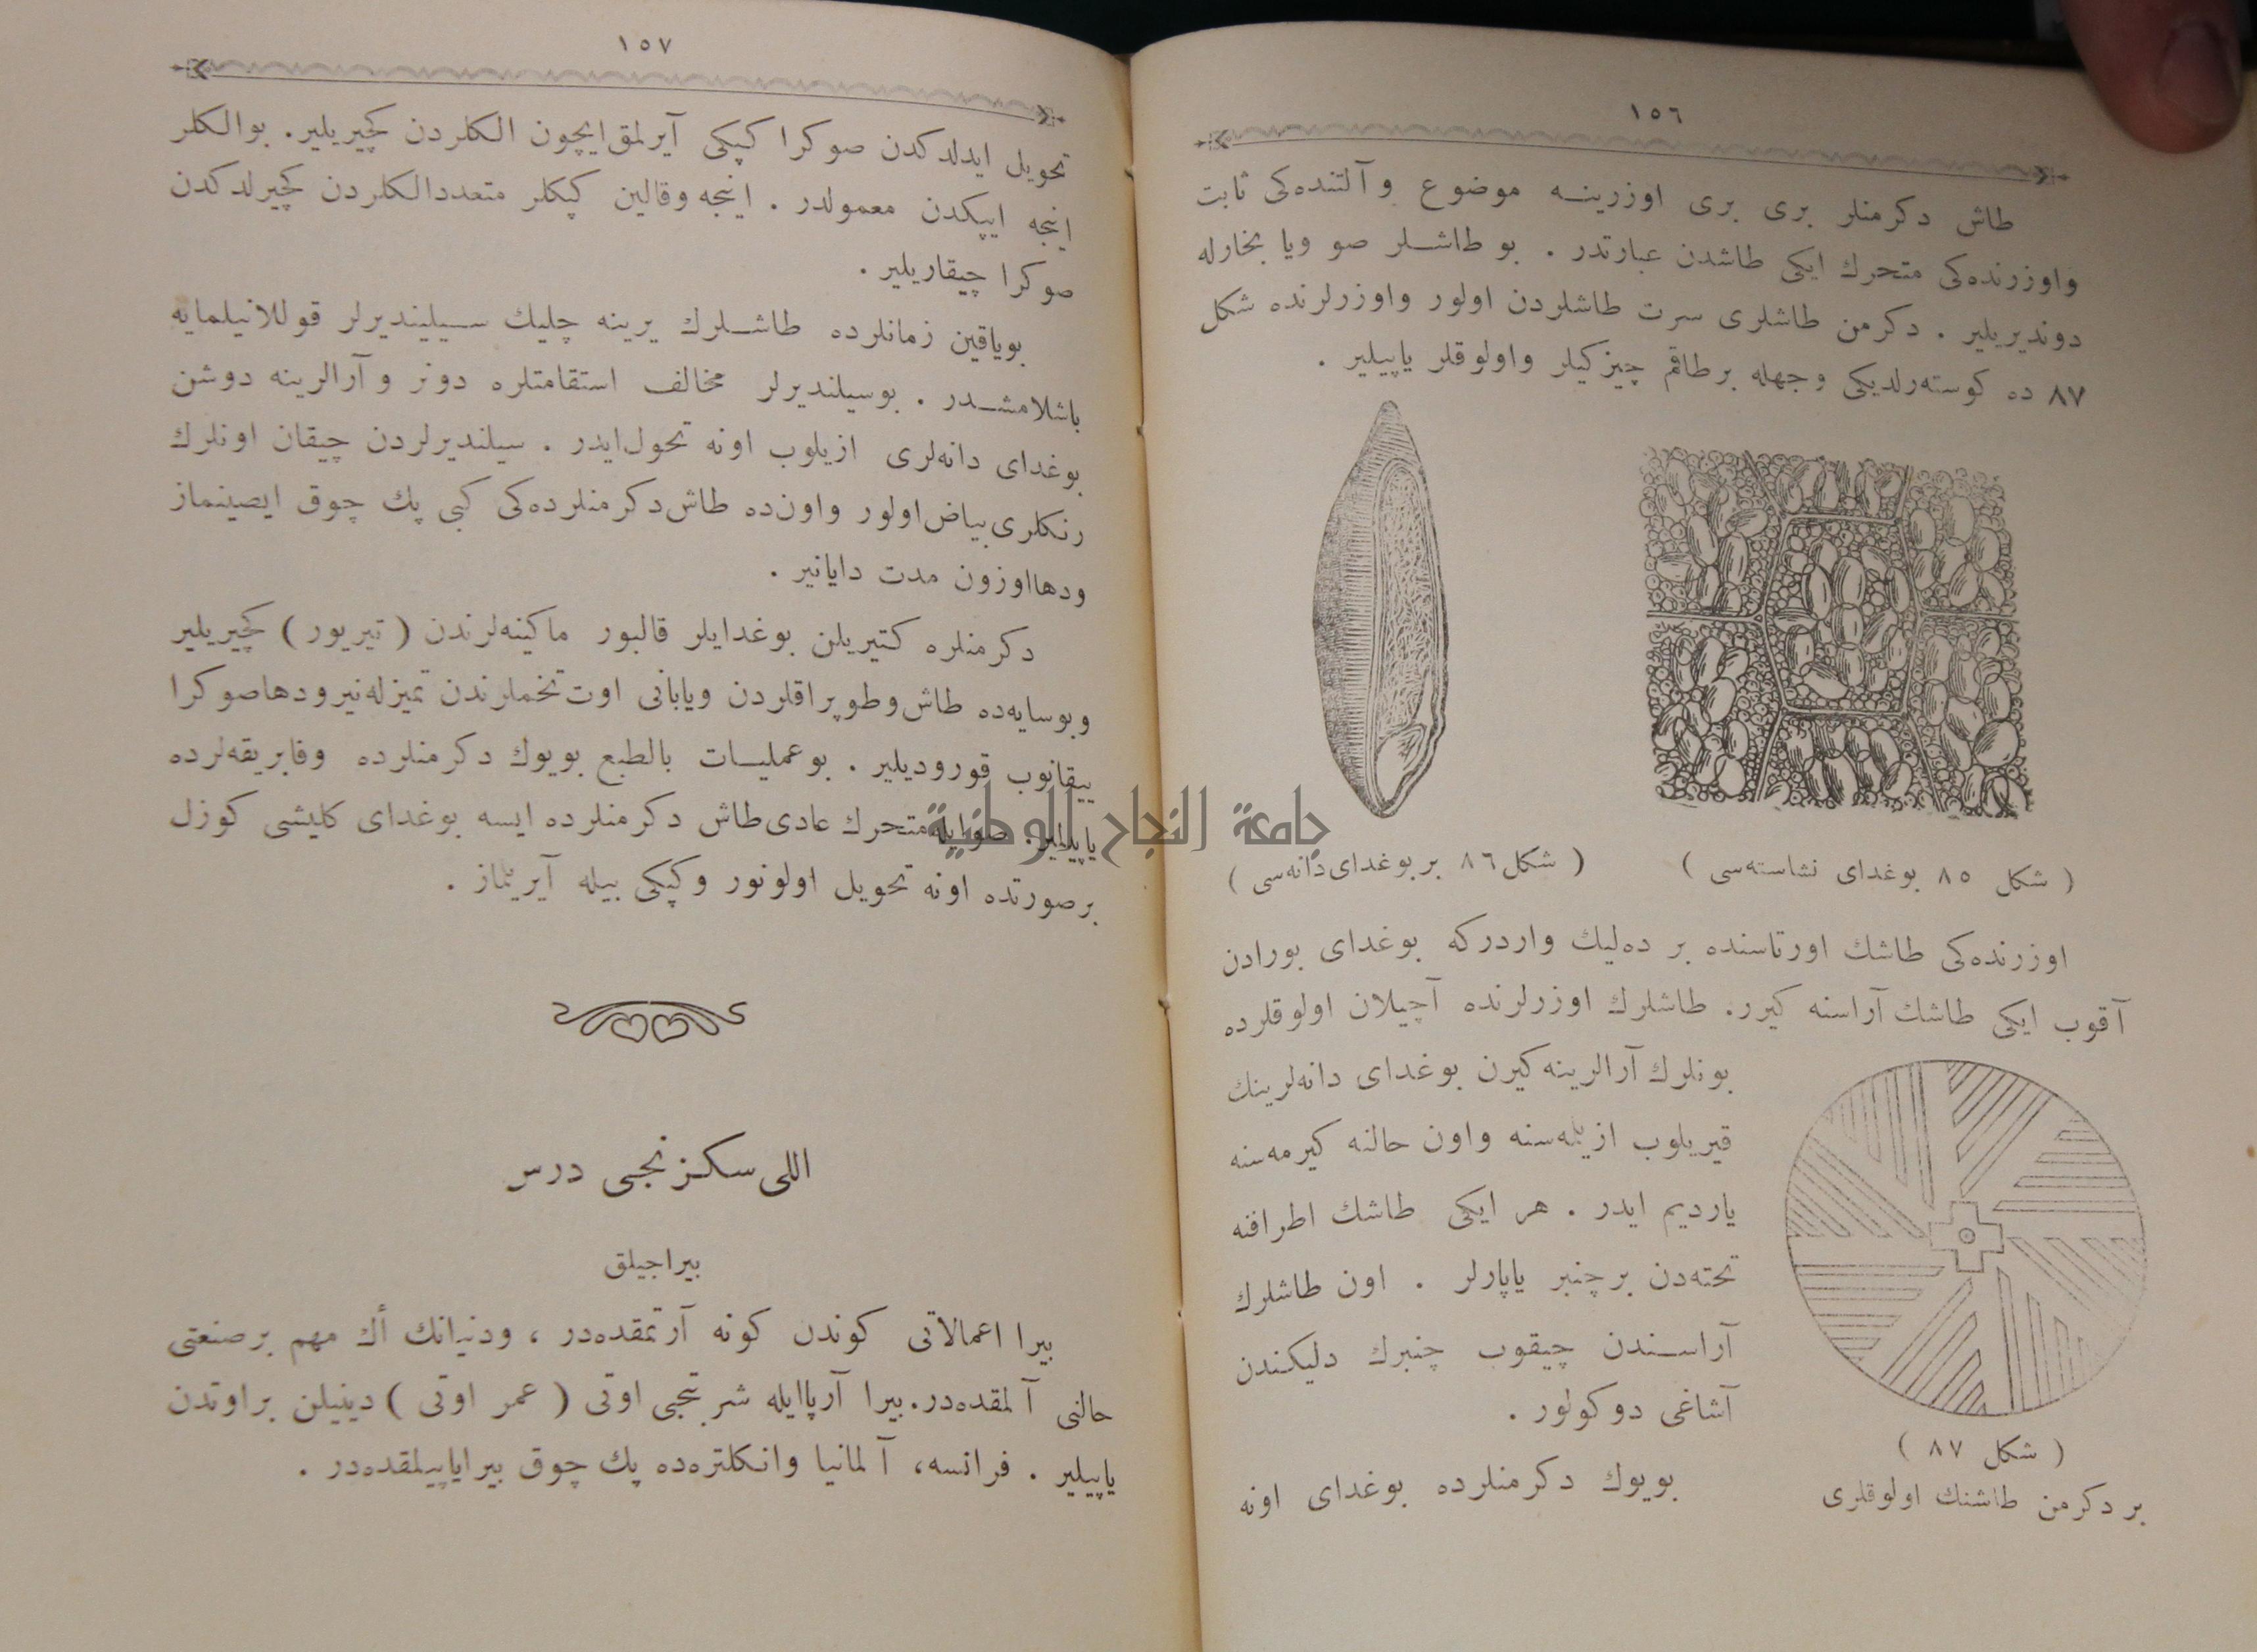 ١٥٦
طاش دكرمنلر بری بری اوزرينـه موضوع و آلتنده‌كی ثابت
واوزرنده‌كی متحرك ايكی طاشدن عبارتدر . بو طاشـلر صو ويا بخارله
دونديريلير . دكرمن طاشلری سرت طاشلردن اولور واوزرلرنده شكل
٨٧ ده كوسته‌رلديكی وجهله برطاقم چيزكيلر واولوقلر ياپيلير .
( شكل ٨٥ بوغدای نشاسته‌سی )
( شكل ٨٦ بر بوغدای دانه‌سی )
اوزرنده‌كی طاشك اورتاسنده بر ده‌ليك واردركه بوغدای بورادن
آقوب ايكی طاشك آراسنه كيرر. طاشلرك اوزرلرنده آچيلان اولوقلرده
بونلرك آرالرينه كيرن بوغدای دانه‌لرينك
قيريلوب ازيله‌سنه واون حالنه كيرمه‌سنه
يارديم ايدر . هر ايكی طاشك اطرافنه
تخته‌دن بر چنبر ياپارلر . اون طاشلرك
آراسـندن چيقوب چنبرك دليكندن
آشاغی دوكولور .
( شكل ٨٧ )
بر دكرمن طاشنك اولوقلری
بويوك دكرمنلرده بوغدای اونه
١٥٧
تحويل ايدلدكدن صوكرا كپكی آيرلمق ايچون الكلردن كچيريلير. بوالكلر
اينجه ايپكدن معمولدر . اينجه وقالين كپكلر متعددالكلردن كچيرلدكدن
صوكرا چيقاريلير .
بوياقين زمانلرده طاشـلرك يرينه چليك سـيلينديرلر قوللانيلمايه
باشلامشـدر . بوسيلنديرلر مخالف استقامتلره دونر و آرالرينه دوشن
بوغدای دانه‌لری ازيلوب اونه تحول ايدر . سيلنديرلردن چيقان اونلرك
رنكلری بياض اولور واون ده طاش دكرمنلرده‌كی كبی پك چوق ايصينماز
ودهااوزون مدت دايانير .
دكرمنلره كتيريلن بوغدايلر قالبور ماكينه‌لرندن ( تيريور ) كچيريلير
وبوسايه‌ده طاش وطوپراقلردن ويابانی اوت تخملرندن تميزله‌نير ودهاصوكرا
ييقانوب قوروديلير . بوعمليـات بالطبع بويوك دكرمنلرده وفابريقه‌لرده
ياپيلير. صوايله متحرك عادی طاش دكرمنلرده ايسه بوغدای كليشی كوزل
برصورتده اونه تحويل اولونور وكپكی بيله آيريلماز .
جامعة النجاح الوطنية
اللی سكزنجی درس
بيراجيلق
بيرا اعمالاتی كوندن كونه آرتمقده‌در ، ودنيانك أك مهم برصنعتی
حالنی آلمقده‌در. بيرا آرپاايله شربتجی اوتی ( عمر اوتی ) دينيلن براوتدن
ياپيلير . فرانسه، آلمانيا وانكلتره‌ده پك چوق بيراياپيلمقده‌در .